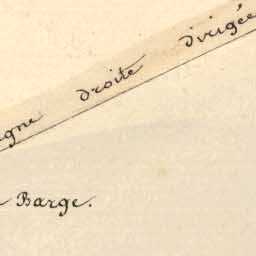 igne droite dirigée
Barge.